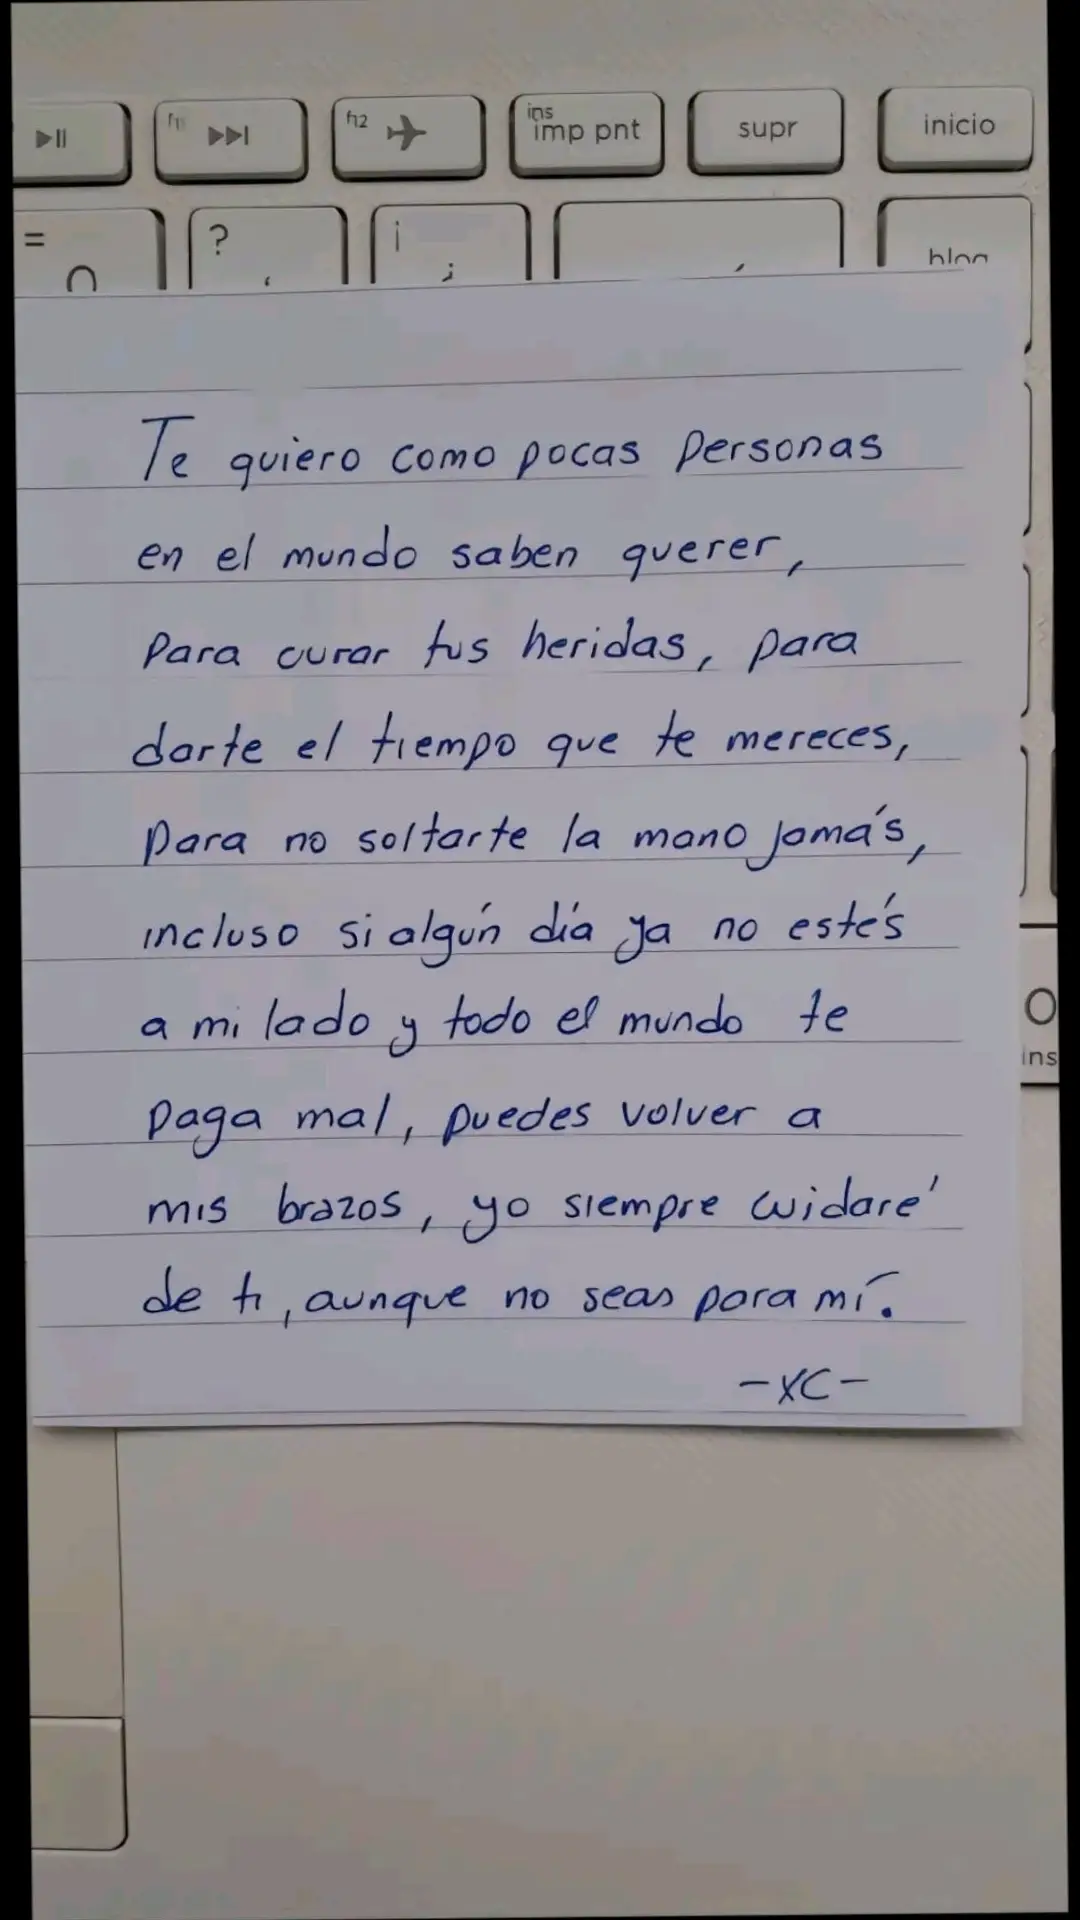 f11
f12
ins
imp pnt
supr
inicio
=
?
¡
Te quiero como pocas personas
en el mundo saben querer,
para curar tus heridas, para
darte el tiempo que te mereces,
para no soltarte la mano jamás,
incluso si algún día ya no estés
a mi lado y todo el mundo te
paga mal, puedes volver a
mis brazos, yo siempre cuidaré
de ti, aunque no seas para mí.
-XC-
0
ins